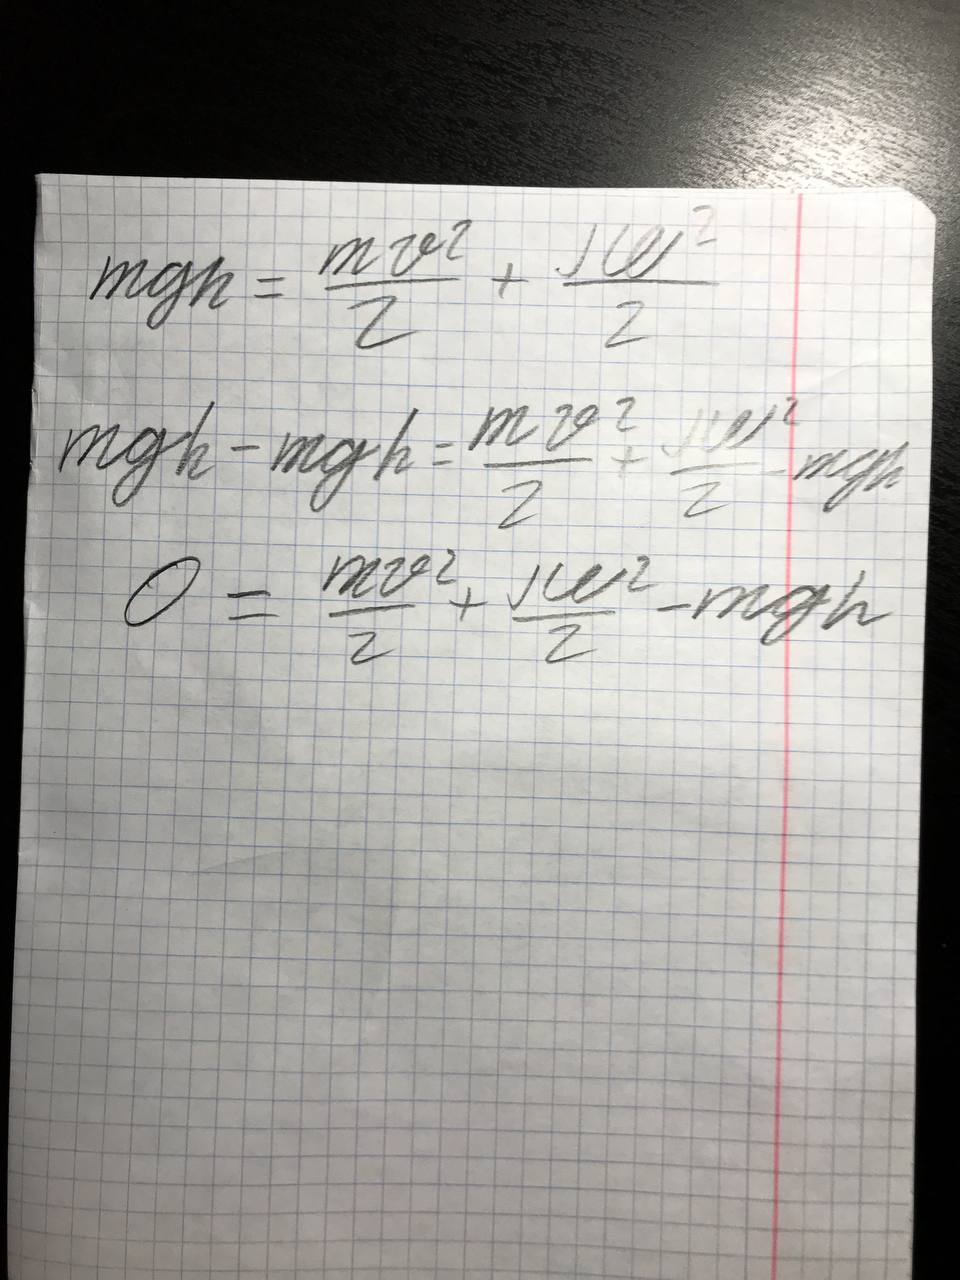 mgh = mv²/2 + Jω²/2
mgh - mgh = mv²/2 + Jω²/2 - mgh
0 = mv²/2 + Jω²/2 - mgh